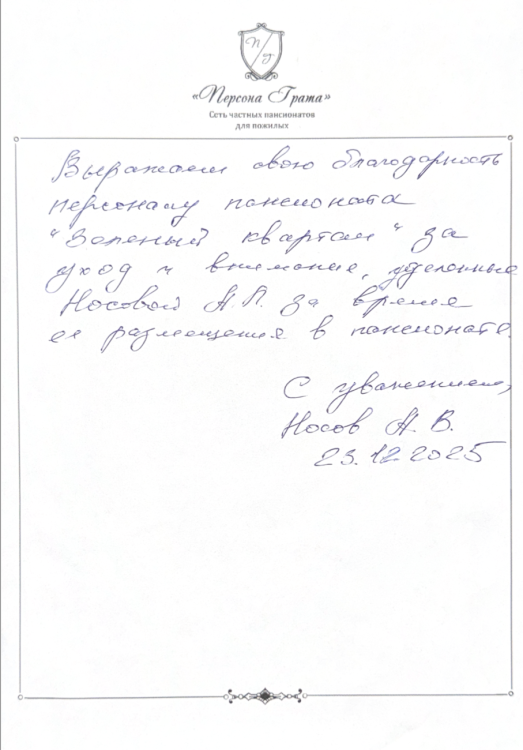 П/Г
«Персона Грата»
Сеть частных пансионатов
для пожилых
Выражаем свою благодарность
персоналу пансионата
"Зеленый квартал" за
уход и внимание, уделенные
Носовой А.П. за время
ее размещения в пансионате.
С уважением,
Носов А. В.
23.12.2025